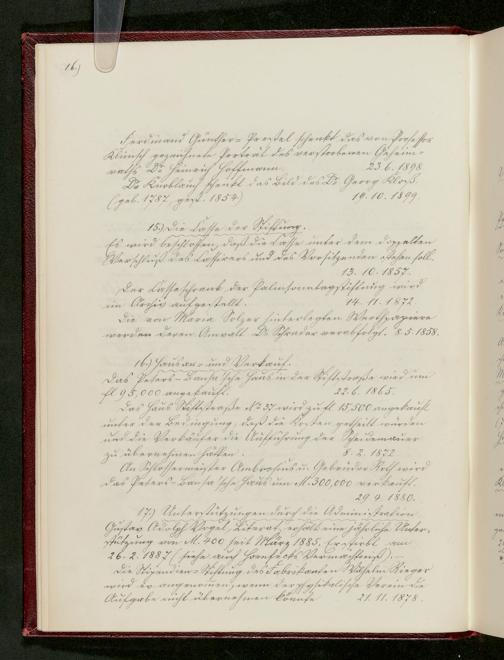 16.)
Ferdinand Günther-Prestel schenkt das von Professor
Klimsch gezeichnete Porträt des verstorbenen Geheim-
raths Dr. Heinrich Hoffmann. 23.6.1898.
Dr. Knoblauch schenkt das Bild des Dr. Georg Kloß.
(geb. 1787, gest. 1854) 19.10.1899.
15.) Die Casse der Stiftung.
Es wird beschlossen, daß die Casse unter dem doppelten
Verschluß des Cassiers und des Vorsitzenden stehen soll.
13.10.1857.
Der Casseschrank der Palmsonntagstiftung wird
im Archiv aufgestellt. 14.11.1872
Die von Maria Belzer hinterlegten Werthpapiere
werden deren Anwalt Dr. Schrader verabfolgt. 8.5.1858.
16.) Hausan- und Verkauf.
Das Peters-Bansa'sche Haus in der Stiftstraße wird um
fl 95,000 angekauft. 22.6.1865.
Das Haus Stiftstraße No 37 wird zu fl 15,500 angekauft
unter der Bedingung, daß die Kosten getheilt würden
und die Verkäufer die Aufführung der Scheidemauer
zu übernehmen hätten. 8.2.1872
An Schlossermeister Ambrosius u. Gebrüder Roth wird
das Peters-Bansa'sche Haus um M. 300,000 verkauft.
29.9.1880.
17.) Unterstützungen durch die Administration.
Gustav Adolph Vogel, Literat, erhält eine jährliche Unter-
stützung von M. 400 seit März 1885. Er stirbt am
26.2.1887 (siehe auch Weihnachten).
Die Stipendien-Stiftung des Fabrikanten Wilhelm Rieger
wird angenommen, wenn der physikalische Verein die
Aufgabe nicht übernehmen könnte 21.11.1878.